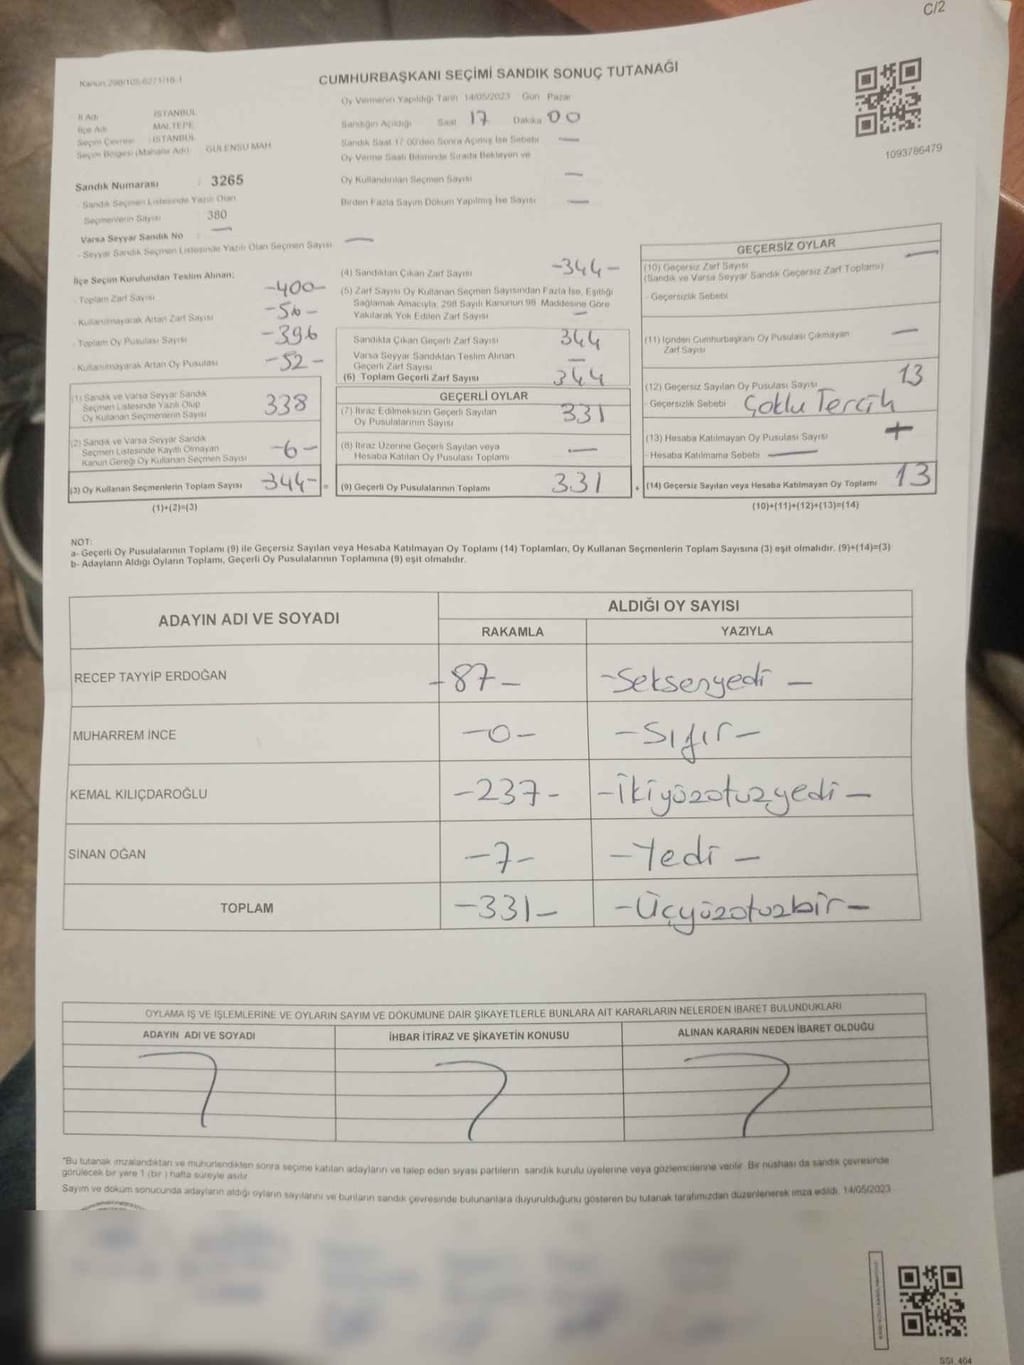 C/2
Kanun 298/105-6271/16-1
CUMHURBAŞKANI SEÇİMİ SANDIK SONUÇ TUTANAĞI
İl Adı : İSTANBUL
İlçe Adı : MALTEPE
Seçim Çevresi : İSTANBUL
Seçim Bölgesi (Mahalle Adı) : GÜLENSU MAH
Sandık Numarası : 3265
- Sandık Seçmen Listesinde Yazılı Olan
Seçmenlerin Sayısı : 380
Varsa Seyyar Sandık No —
- Seyyar Sandık Seçmen Listesinde Yazılı Olan Seçmen Sayısı —
Oy Vermenin Yapıldığı Tarih 14/05/2023 Gün Pazar
Sandığın Açıldığı Saat 17 Dakika 00
Sandık Saat 17:00'den Sonra Açılmış İse Sebebi —
Oy Verme Saati Bitiminde Sırada Bekleyen ve
Oy Kullandırılan Seçmen Sayısı —
Birden Fazla Sayım Döküm Yapılmış İse Sayısı —
1093786479
İlçe Seçim Kurulundan Teslim Alınan;
- Toplam Zarf Sayısı -400-
- Kullanılmayarak Artan Zarf Sayısı -56-
- Toplam Oy Pusulası Sayısı -396
- Kullanılmayarak Artan Oy Pusulası -52-
(1) Sandık ve Varsa Seyyar Sandık
Seçmen Listesinde Yazılı Olup
Oy Kullanan Seçmenlerin Sayısı 338
(2) Sandık ve Varsa Seyyar Sandık
Seçmen Listesinde Kayıtlı Olmayan
Kanun Gereği Oy Kullanan Seçmen Sayısı -6-
(3) Oy Kullanan Seçmenlerin Toplam Sayısı 344- =
(1)+(2)=(3)
(4) Sandıktan Çıkan Zarf Sayısı -344-
(5) Zarf Sayısı Oy Kullanan Seçmen Sayısından Fazla İse, Eşitliği
Sağlamak Amacıyla, 298 Sayılı Kanunun 98. Maddesine Göre
Yakılarak Yok Edilen Zarf Sayısı —
Sandıkta Çıkan Geçerli Zarf Sayısı 344
Varsa Seyyar Sandıktan Teslim Alınan
Geçerli Zarf Sayısı —
(6) Toplam Geçerli Zarf Sayısı 344
GEÇERLİ OYLAR
(7) İtiraz Edilmeksizin Geçerli Sayılan
Oy Pusulalarının Sayısı 331
(8) İtiraz Üzerine Geçerli Sayılan veya
Hesaba Katılan Oy Pusulası Toplamı —
(9) Geçerli Oy Pusulalarının Toplamı 331 +
GEÇERSİZ OYLAR
(10) Geçersiz Zarf Sayısı —
(Sandık ve Varsa Seyyar Sandık Geçersiz Zarf Toplamı)
- Geçersizlik Sebebi
(11) İçinden Cumhurbaşkanı Oy Pusulası Çıkmayan
Zarf Sayısı —
(12) Geçersiz Sayılan Oy Pusulası Sayısı 13
- Geçersizlik Sebebi Çoklu Tercih
(13) Hesaba Katılmayan Oy Pusulası Sayısı +
- Hesaba Katılmama Sebebi —
(14) Geçersiz Sayılan veya Hesaba Katılmayan Oy Toplamı 13
(10)+(11)+(12)+(13)=(14)
NOT:
a- Geçerli Oy Pusulalarının Toplamı (9) ile Geçersiz Sayılan veya Hesaba Katılmayan Oy Toplamı (14) Toplamları, Oy Kullanan Seçmenlerin Toplam Sayısına (3) eşit olmalıdır. (9)+(14)=(3)
b- Adayların Aldığı Oyların Toplamı, Geçerli Oy Pusulalarının Toplamına (9) eşit olmalıdır.
ADAYIN ADI VE SOYADI ALDIĞI OY SAYISI
RAKAMLA YAZIYLA
RECEP TAYYİP ERDOĞAN -87- -Seksenyedi-
MUHARREM İNCE -0- -Sıfır-
KEMAL KILIÇDAROĞLU -237- -İkiyüzotuzyedi-
SİNAN OĞAN -7- -Yedi-
TOPLAM -331- -Üçyüzotuzbir-
OYLAMA İŞ VE İŞLEMLERİNE VE OYLARIN SAYIM VE DÖKÜMÜNE DAİR ŞİKAYETLERLE BUNLARA AİT KARARLARIN NELERDEN İBARET BULUNDUKLARI
ADAYIN ADI VE SOYADI İHBAR İTİRAZ VE ŞİKAYETİN KONUSU ALINAN KARARIN NEDEN İBARET OLDUĞU
*Bu tutanak imzalandıktan ve mühürlendikten sonra seçime katılan adayların ve talep eden siyasi partilerin, sandık kurulu üyelerine veya gözlemcilerine verilir. Bir nüshası da sandık çevresinde
görülecek bir yere 1 (bir) hafta süreyle asılır.
Sayım ve döküm sonucunda adayların aldığı oyların sayılarını ve bunların sandık çevresinde bulunanlara duyurulduğunu gösteren bu tutanak tarafımızdan düzenlenerek imza edildi. 14/05/2023
SSİ. 404